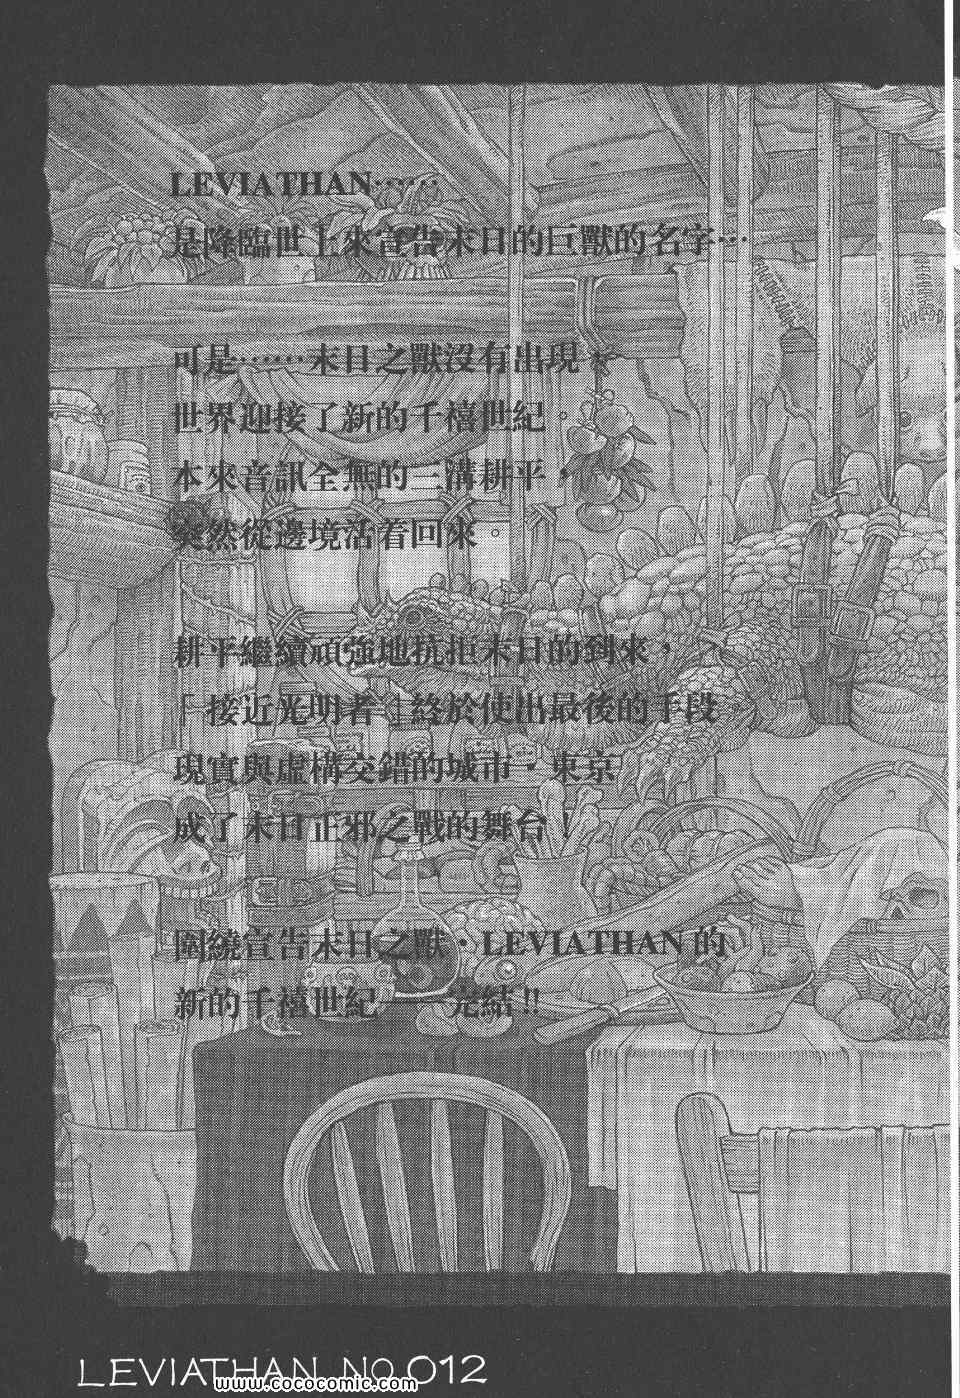 LEVIATHAN……
是降臨世上來宣告末日的巨獸的名字…
可是……末日之獸沒有出現，
世界迎接了新的千禧世紀。
本來音訊全無的三溝耕平，
突然從邊境活着回來。
耕平繼續頑強地抗拒末日的到來，
「接近光明者」終於使出最後的手段
現實與虛構交錯的城市・東京
成了末日正邪之戰的舞台！
圍繞宣告末日之獸・LEVIATHAN 的
新的千禧世紀——完結!!
LEVIATHAN NO.012
www.cococomic.com